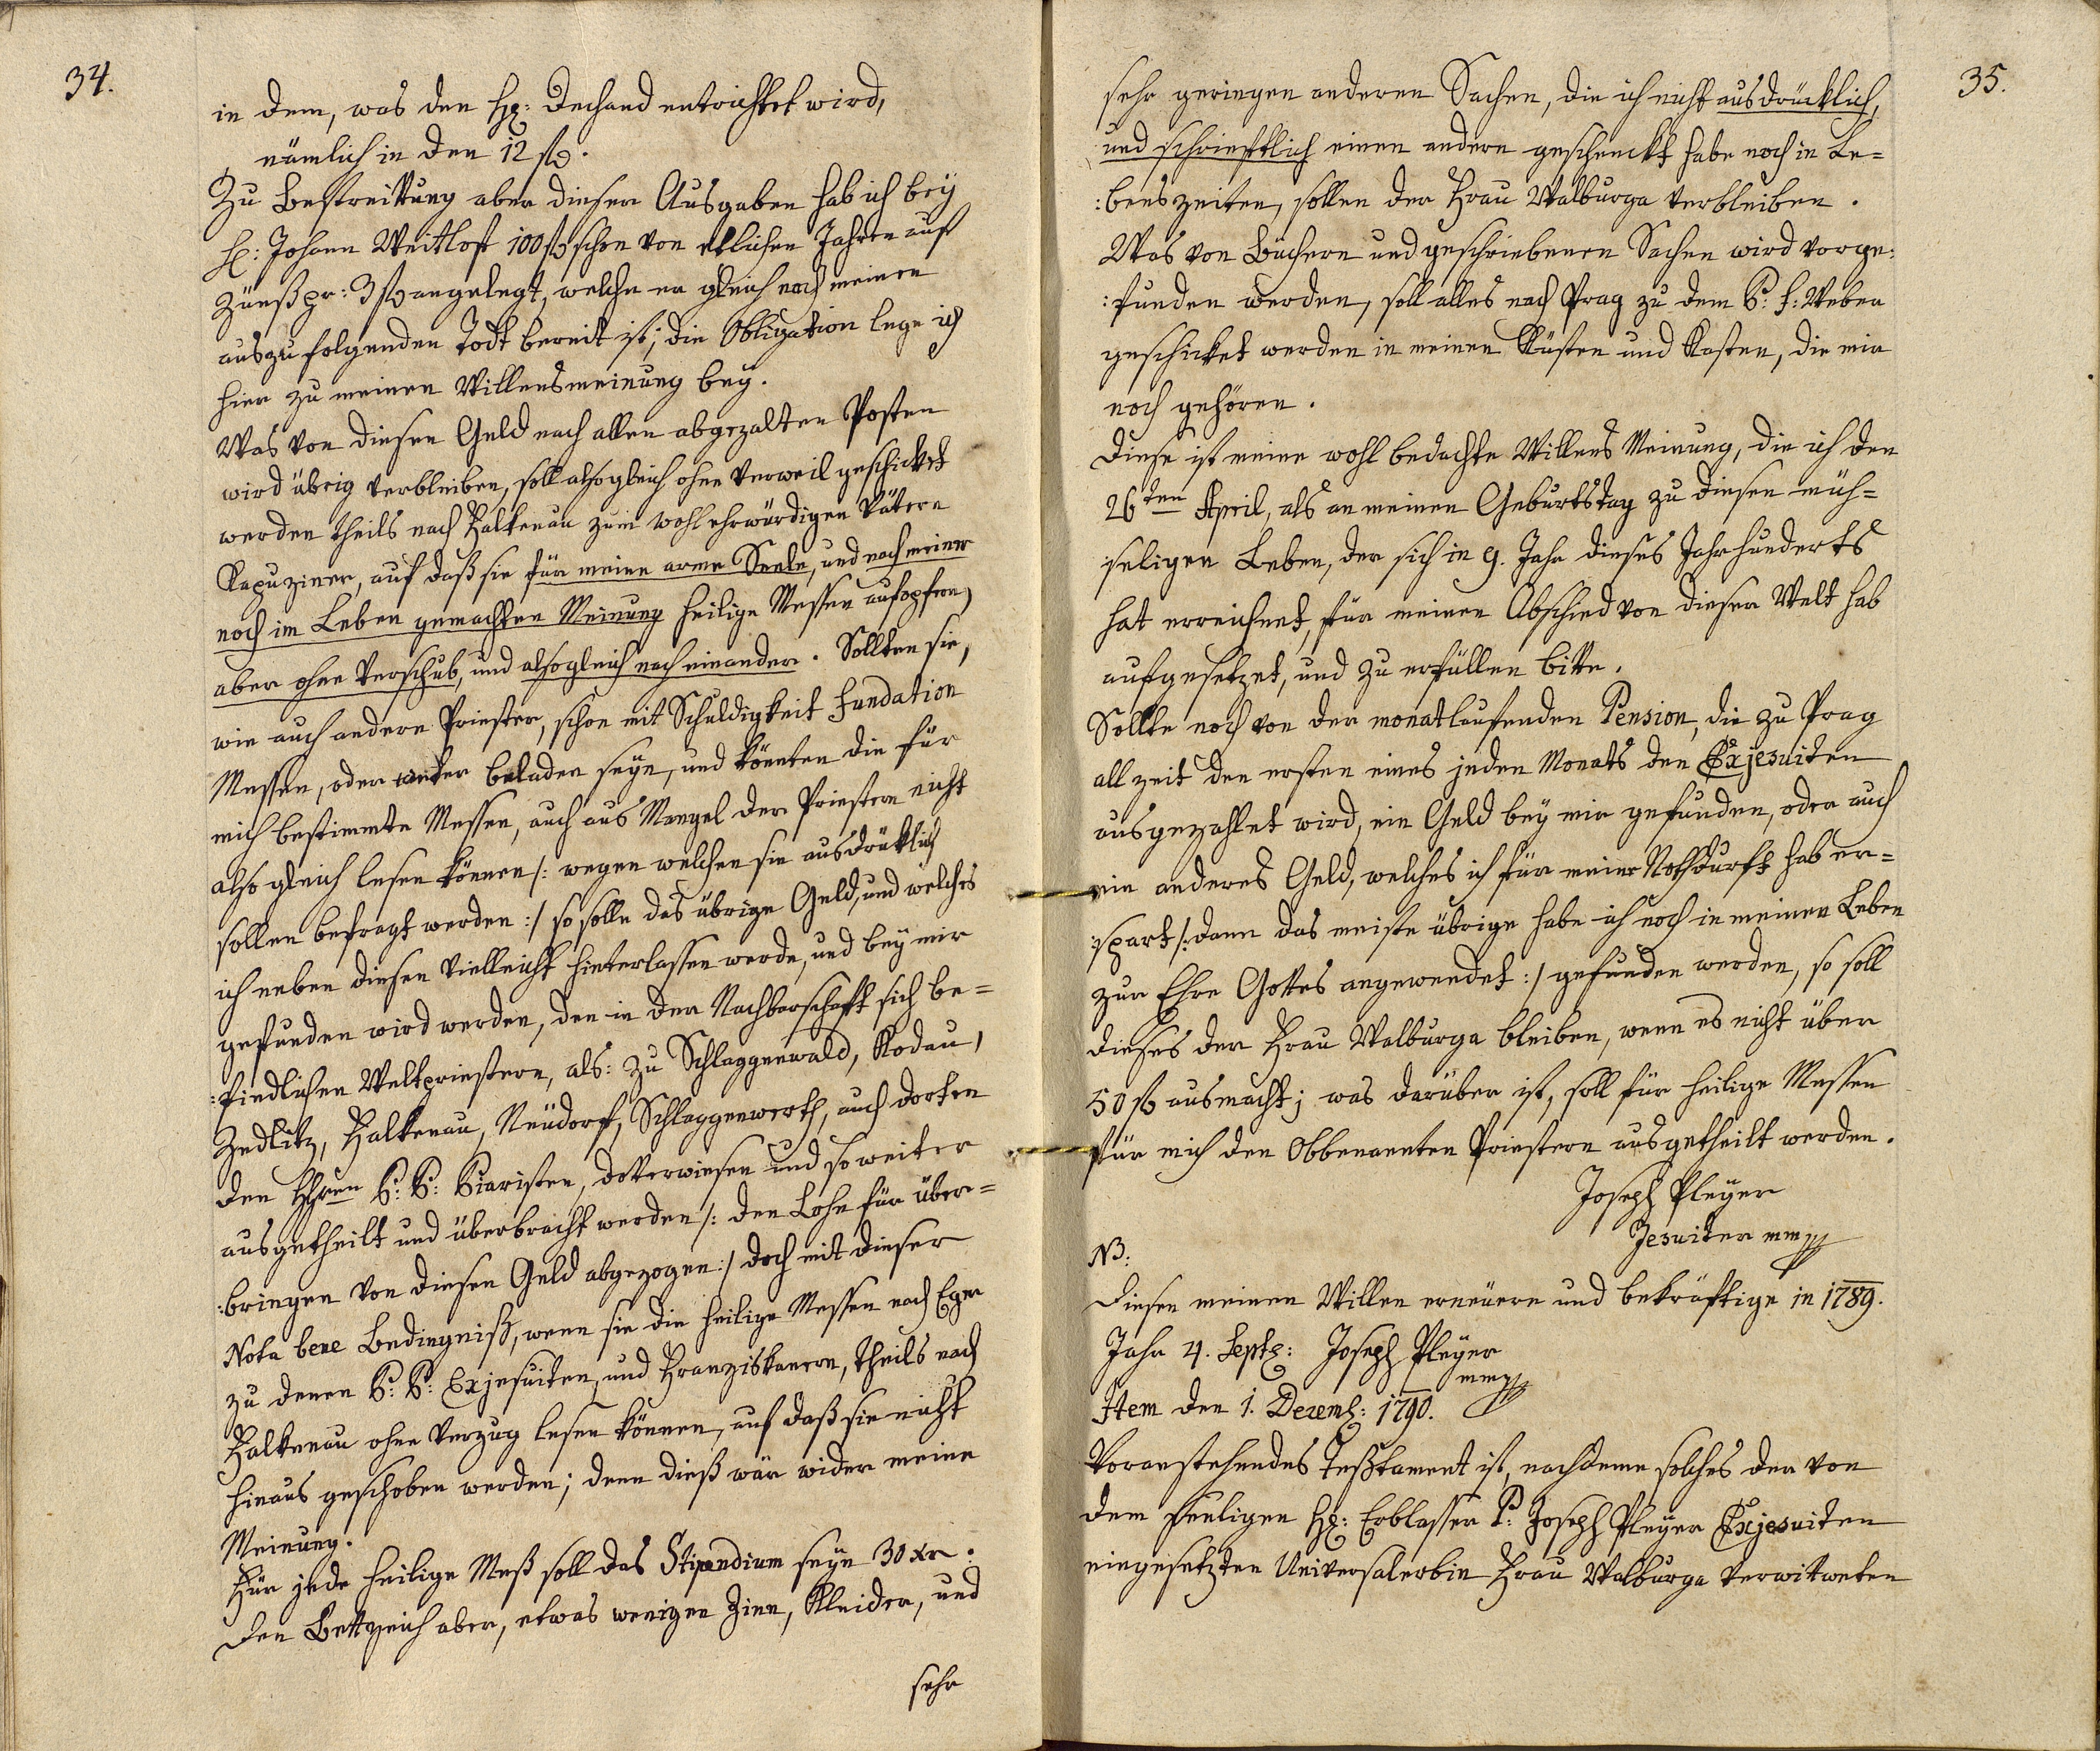 34.
in dem, was den H: Dechand entrichtet wird,
nämlich in den 12 fl.
Zu Bestreitung aber dieser Ausgaben hab ich bey
H: Johann Weitlof 100 fl schon von etlichen Jahren auf
Zünß pr: 3 fl angelegt, welche er gleich nach meinen
auszufolgenden Todt bereit ist; die Obligation lege ich
hier zu meinen Willensmeinung bey.
Was von diesen Geld nach allen abgezalten Posten
wird übrig verbleiben, soll alsogleich ohne Verweil geschicket
werden theils nach Falkenau zum wohlehrwürdigen Vätern
Kapuziner, auf daß sie für meine arme Seele, und nach meiner
noch im Leben gemachten Meinung heilige Messen aufopfern,
aber ohne Verschub, und alsogleich nach einander. Sollten sie,
wie auch andere Priester, schon mit Schuldigkeit Fundation
Messen, oder beladen seyn, und könnten die für
mich bestimmte Messen, auch aus Mangel der Priestern nicht
also gleich lesen können /: wegen welchen sie ausdrüklich
sollen befragt werden :/ so solle das übrige Geld, und welches
ich neben diesen vielleicht hinterlassen werde, und bey mir
gefunden wird werden, den in der Nachbarschaft sich be=
:findlichen Weltpriestern, als: zu Schlaggenwald, Kodau,
Zedlitz, Falkenau, Neüdorf, Schlaggenwerth, auch dorten
den Hhren P: P: Piaristen, Dotterwiesen und so weiter
ausgetheilt und überbracht werden /: den Lohn für über=
:bringen von diesen Geld abgezogen :/ doch mit dieser
Nota bene Bedingniß, wenn sie die heilige Messen nach Eger
zu denen P: P: Exjesuiten, und Franziskanern, theils nach
Falkenau ohne Verzug lesen können, auf daß sie nicht
hinaus geschoben werden; denn dieß wär wider meine
Meinung.
Für jede heilige Meß soll das Stipendium seyn 30 xr.
Den Bettzeich aber, etwas weniger Zinn, Kleider, und
sehr
35.
sehr geringen anderen Sachen, die ich nicht ausdrücklich,
und schrieftlich einen andern geschenckt habe noch in Le=
:benszeiten, sollen der Frau Walburga verbleiben.
Was von Büchern und geschriebenen Sachen wird vorge:
:funden werden, soll alles nach Prag zu dem P: F: Weber
geschicket werden in meinen Kästen und Kasten, die mir
noch gehören.
Diese ist meine wohl bedachte Willens Meinung, die ich den
26ten April, als an meinen Geburtstag zu diesen müh=
:seligen Leben, der sich in 9. Jahr dieses Jahrhunderts
hat erreichnet, für meinen Abschied von dieser Welt hab
aufgesetzet, und zu erfüllen bitte.
Sollte noch von der monatlaufenden Pension, die zu Prag
all zeit den ersten eines jeden Monats den Exjesuiten
ausgezahlet wird, ein Geld bey mir gefunden, oder auch
ein anderes Geld, welches ich für meine Nothdurft hab er=
:spart /: dann das meiste übrige habe ich noch in meinen Leben
zur Ehre Gottes angewendet :/ gefunden werden, so soll
dieses der Frau Walburga bleiben, wenn es nicht über
50 fl ausmacht; was darüber ist, soll für heilige Messen
für mich den Obbenannten Priestern ausgetheilt werden.
Joseph Pleyer
Jesuiter mm
NB:
Diesen meinen Willen erneüere und bekräftige in 1789.
Jahr 4. Septb: Joseph Pleyer
mm
Item den 1. Decemb: 1790.
Voranstehendes Testtament ist, nachdeme solches der von
dem seeligen H: Erblasser P: Joseph Pleyer Exjesuiten
eingesetzten Universalerbin Frau Walburga verwitweten